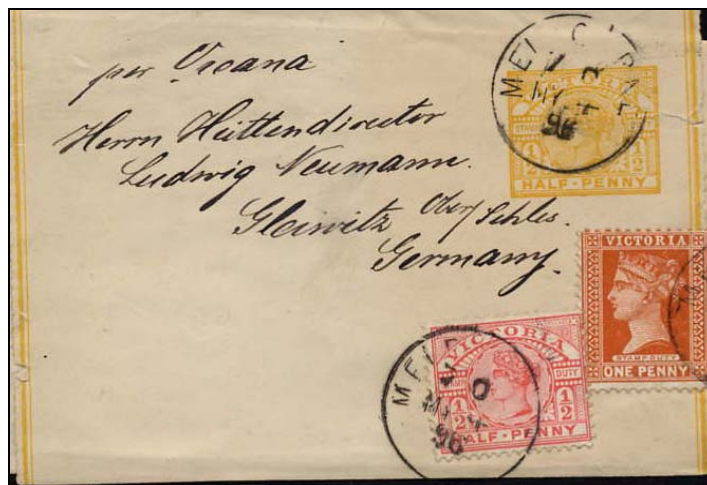 per Oceana
Herrn Hüttendirector
Ludwig Neumann.
Gleiwitz Ober Schles.
Germany.
VICTORIA
STAMP DUTY
1/2 1/2
HALF-PENNY
VICTORIA
STAMP DUTY
ONE PENNY
VICTORIA
DUTY
1/2 1/2
HALF-PENNY
MEL
MY
96
MELB
MY
96